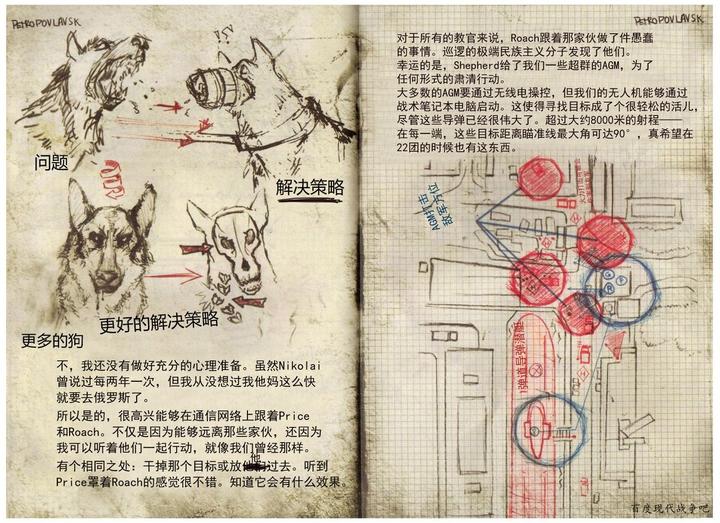 PETROPOVLAVSK
问题
解决策略
更多的狗
更好的解决策略
不，我还没有做好充分的心理准备。虽然Nikolai
曾说过每两年一次，但我从没想过我他妈这么快
就要去俄罗斯了。
所以是的，很高兴能够在通信网络上跟着Price
和Roach。不仅是因为能够远离那些家伙，还因为
我可以听着他们一起行动，就像我们曾经那样。
有个相同之处：干掉那个目标或放他过去。听到
Price罩着Roach的感觉很不错。知道它会有什么效果。
PETROPOVLAVSK
对于所有的教官来说，Roach跟着那家伙做了件愚蠢
的事情。巡逻的极端民族主义分子发现了他们。
幸运的是，Shepherd给了我们一些超群的AGM，为了
任何形式的肃清行动。
大多数的AGM要通过无线电操控，但我们的无人机能够通过
战术笔记本电脑启动。这使得寻找目标成了个很轻松的活儿，
尽管这些导弹已经很伟大了。超过大约8000米的射程——
在每一端，这些目标距离瞄准线最大角可达90°，真希望在
22团的时候也有这东西。
AGM打击
敌军方位
弹道导弹潜艇
百度现代战争吧